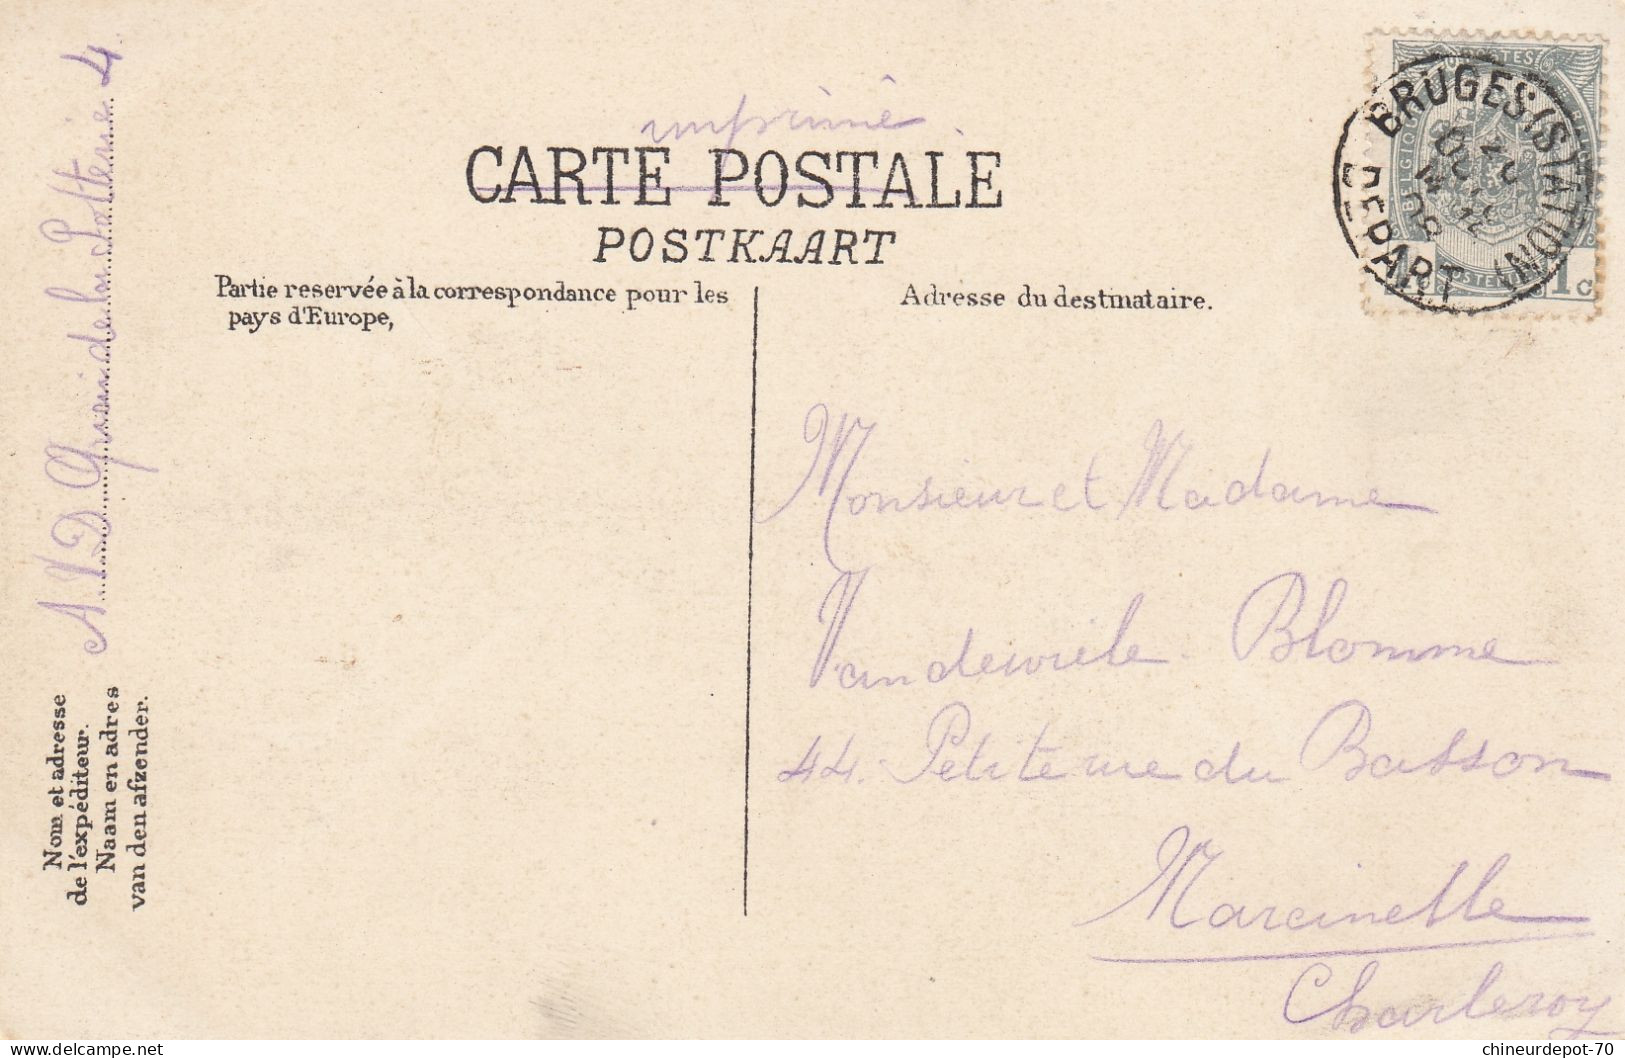 imprimé
CARTE POSTALE
POSTKAART
Partie reservée à la correspondance pour les
pays d'Europe,
Adresse du destinataire.
BRUGES (STATION)
DEPART
BELGIQUE
POSTES
1 c
Monsieur et Madame
Vandewiele - Blomme
44. Petite rue du Basson
Marcinelle
Charleroy
Nom et adresse
de l'expéditeur.
Naam en adres
van den afzender.
A. V. D. Quai de la Potterie 4
chineurdepot-70